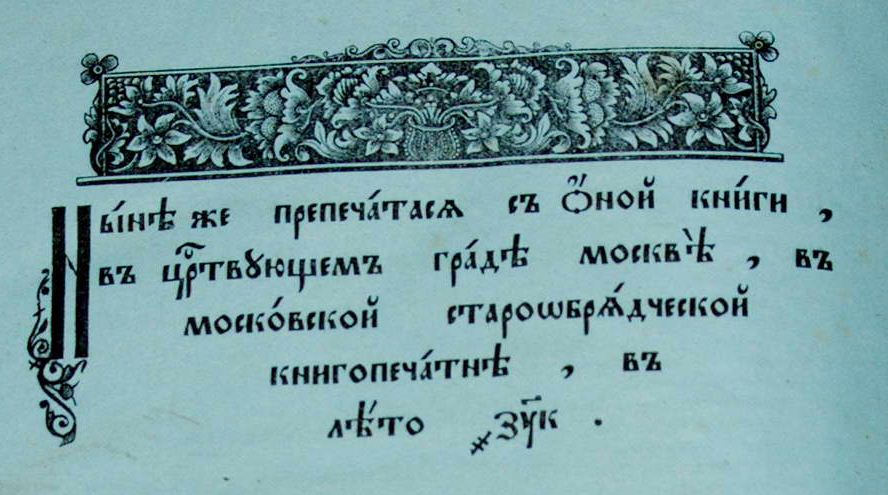 Ны́нѣ же препеча́тасѧ съ ѻ҆́ной кни́ги ,
въ црⷭ҇твꙋющемъ гра́дѣ москвѣ̀ , въ
моско́вской староѡбрѧ́дческой
книгопеча́тнѣ , въ
лѣ́то ҂зу҃к .